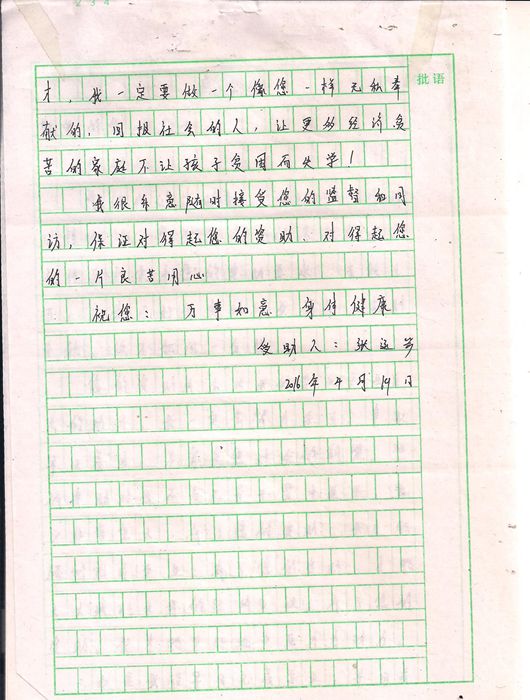 批语
才，我一定要做一个像您一样无私奉
献的，回报社会的人，让更多经济贫
苦的家庭不让孩子贫困而失学！
我很乐意随时接受您的监督和回
访，保证对得起您的资助、对得起您
的一片良苦用心
祝您：万事如意 身体健康
受助人：张
2016年4月19日